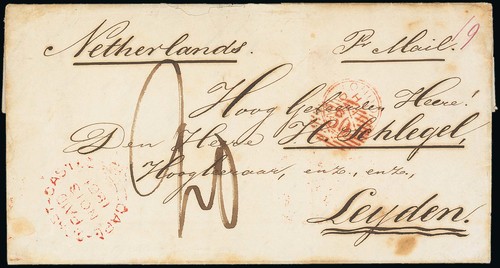 Netherlands. Pr Mail.
Hoog Geleerden Heere!
Den Heere H. Schlegel,
Hoogleeraar, enz., enz.,
Leyden.
PAID